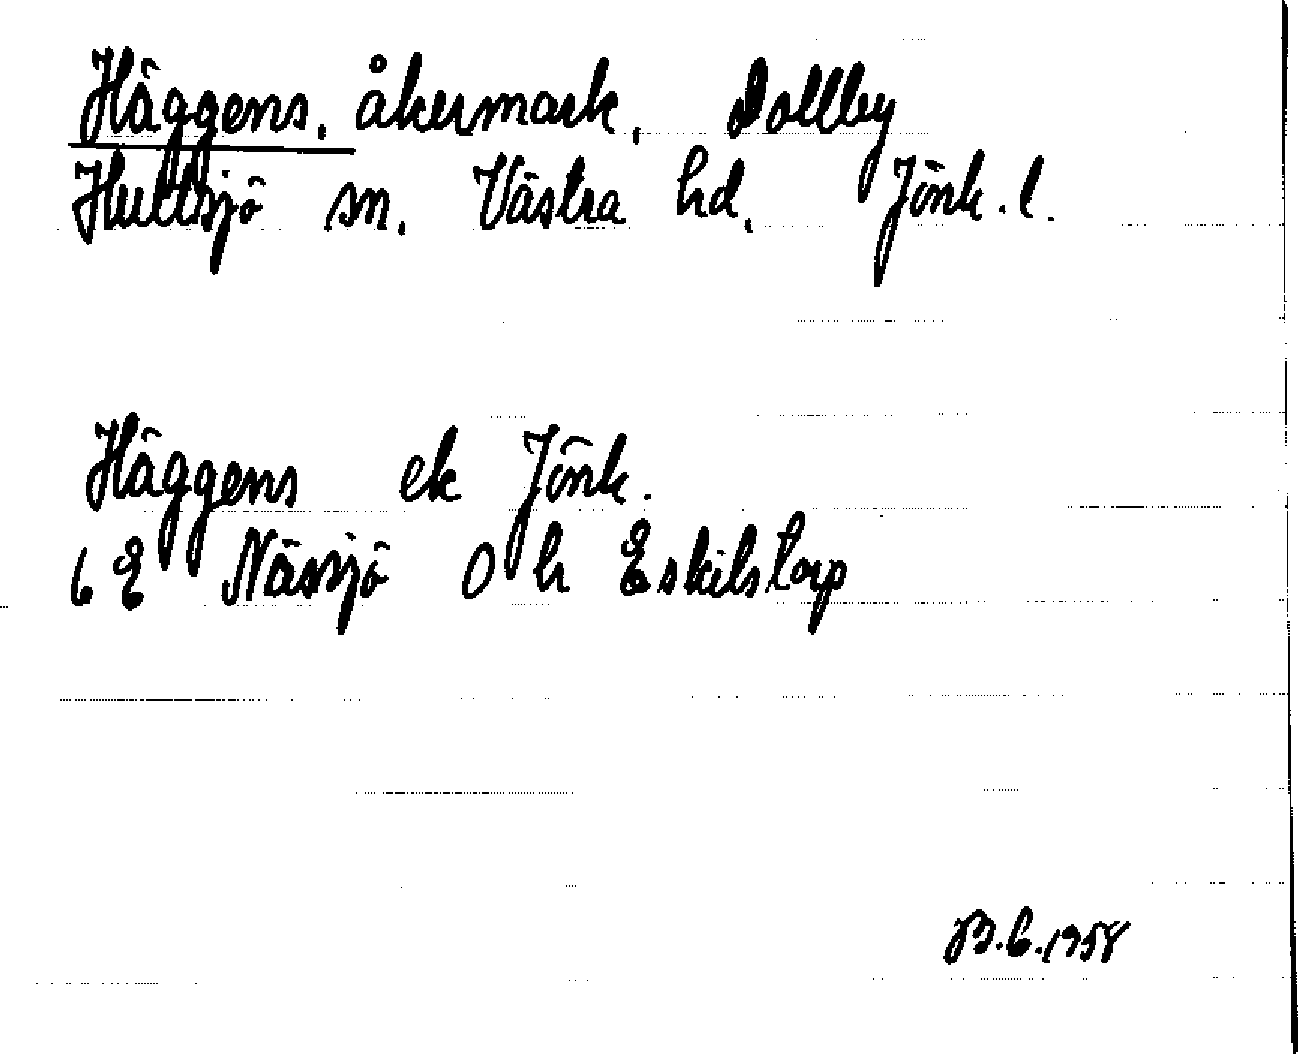 Häggens, åkermark, Dollby
Hultsjö sn, Västra hd, Jönk. l.
Häggens ek Jönk.
6 E Nässjö 0 h Eskilstorp
B.C. 1958